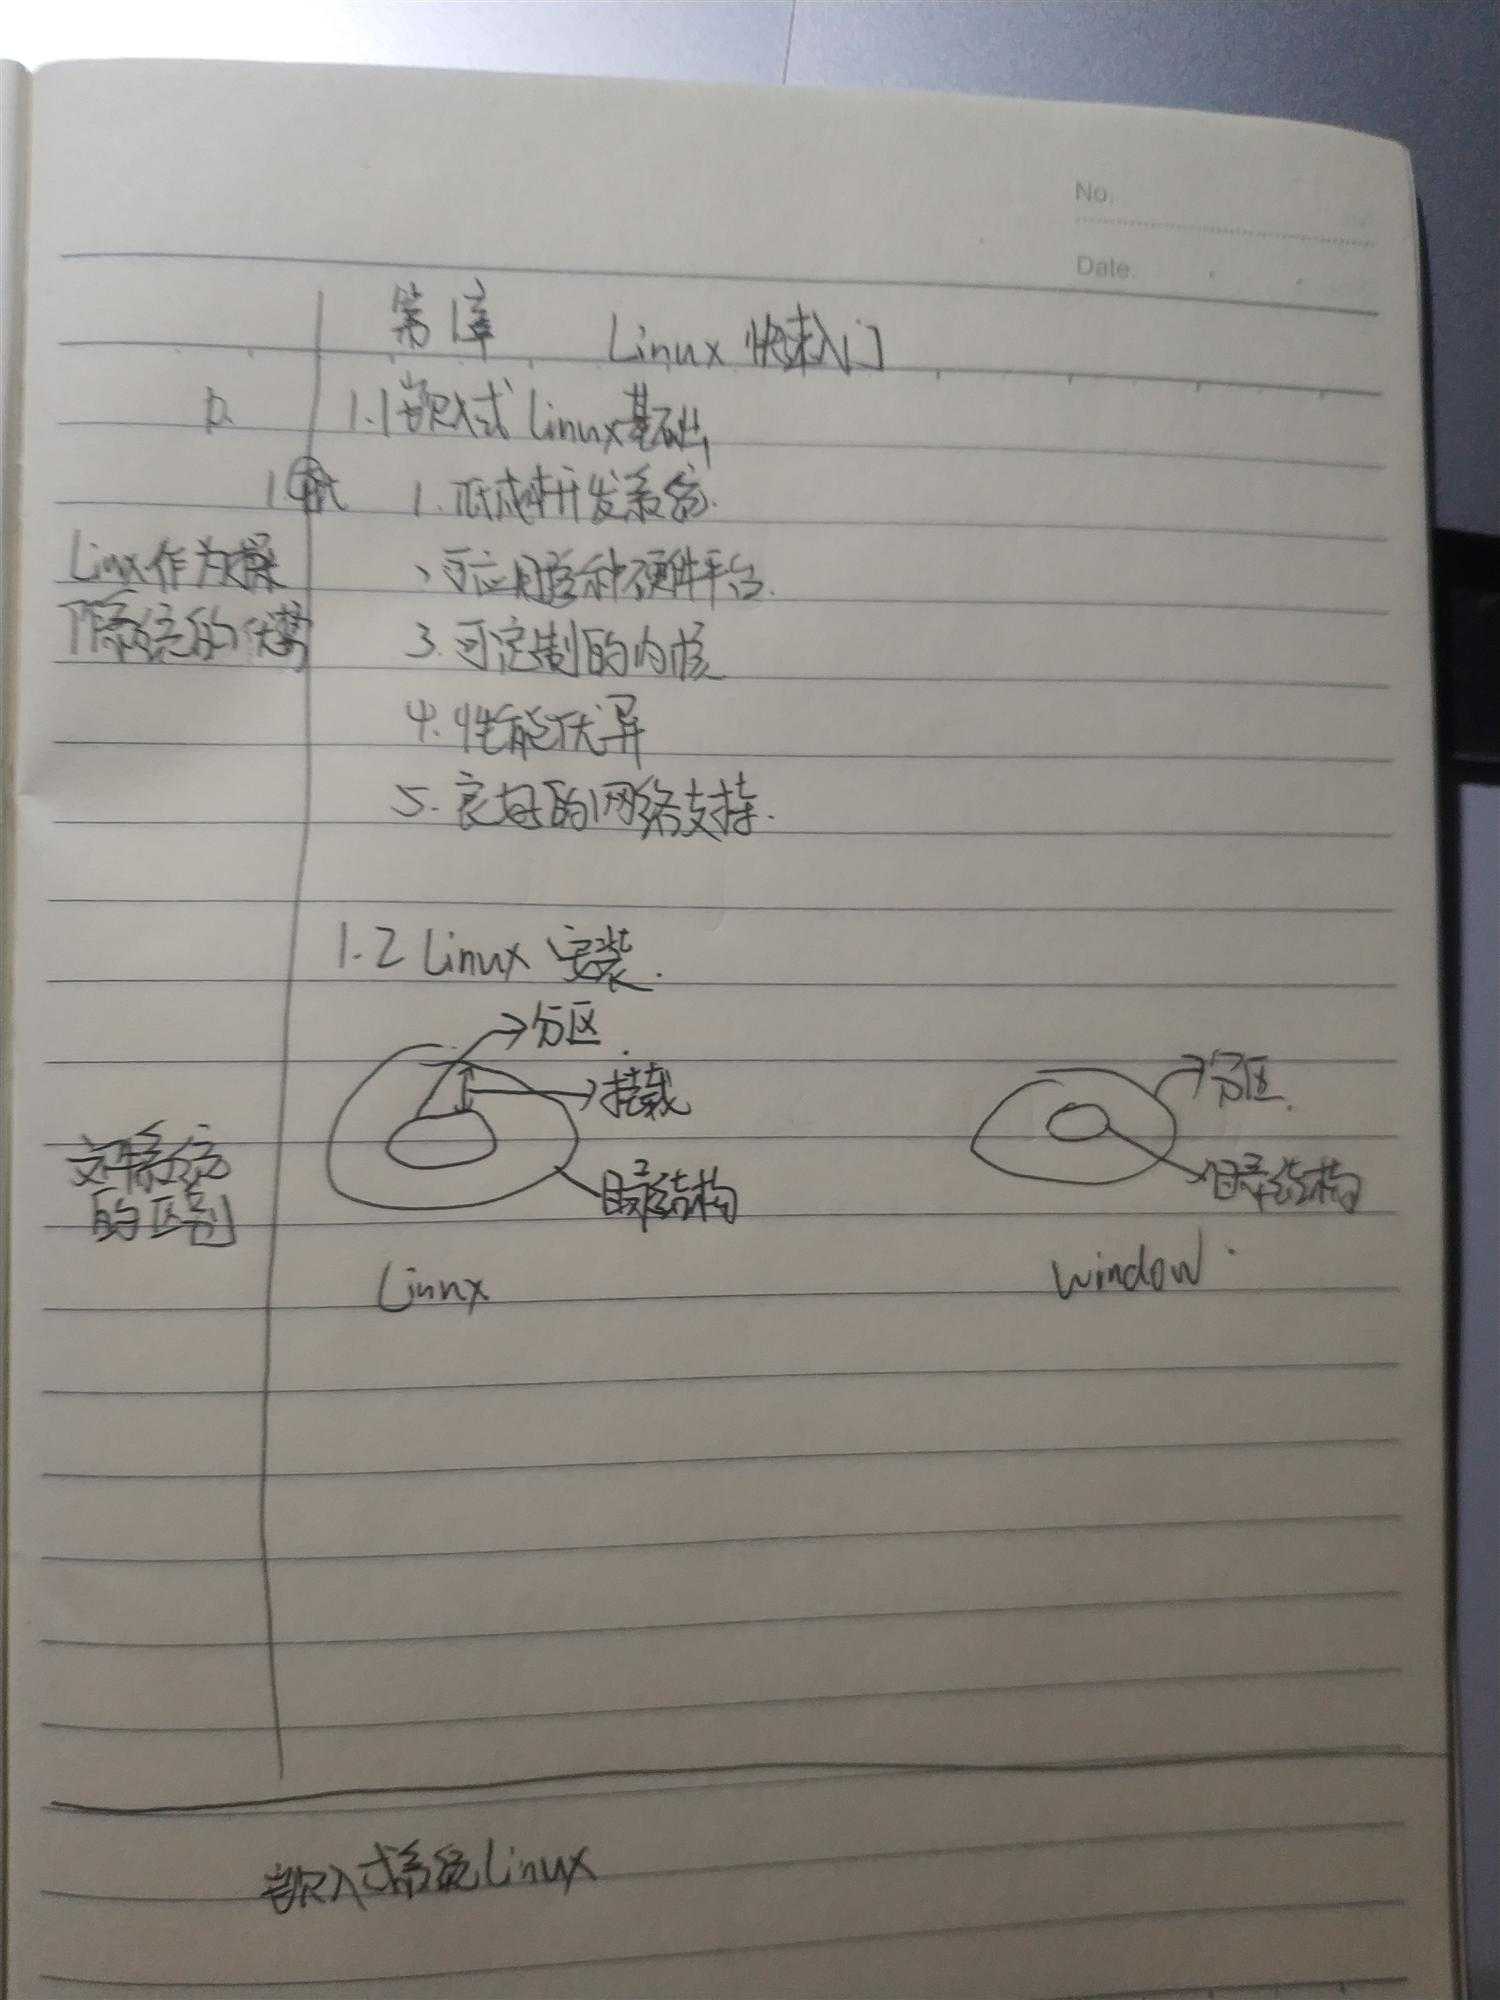 No.
Date.
第1章 Linux 快速入门
1.1 嵌入式 Linux基础
1. 低成本开发系统.
Linx作为操
作系统的优势
、可应用多种硬件平台.
3. 可定制的内核
4. 性能优异
5. 良好的网络支持.
1.2 Linux 安装.
分区.
挂载
目录结构
Linnx
文件系统
的区别
分区.
目录结构
Window.
嵌入式系统Linux